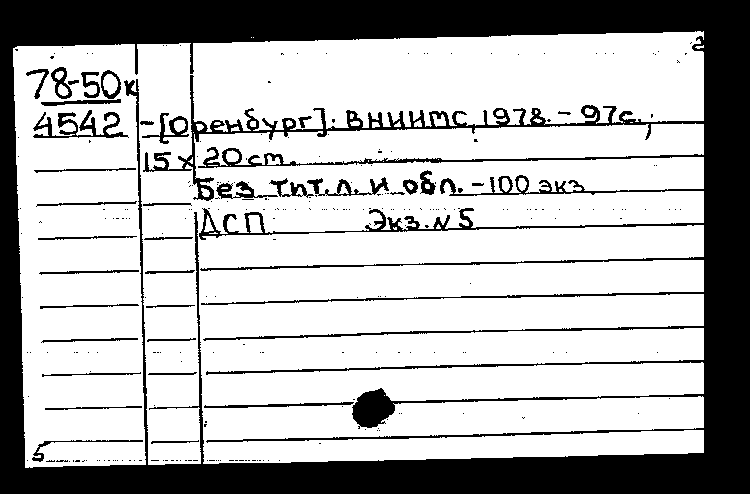 2
78-50к
4542 - [Оренбург]: ВНИИТС, 1978. - 97с.;
15 x 20 cm.
Без тит. л. и обл. - 100 экз.
ДСП Экз. N 5
5